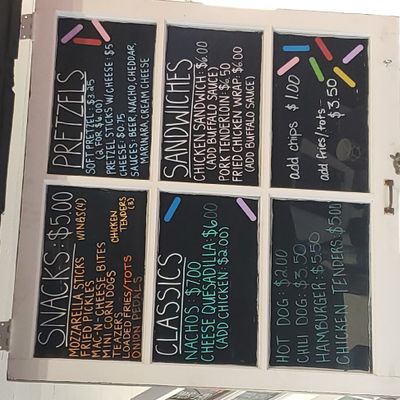 PRETZELS
SOFT PRETZEL: $3.25
(2 FOR $6.00)
PRETZEL STICKS W/CHEESE: $5
CHEESE: $0.75
SAUCES: BEER, NACHO, CHEDDAR,
MARINARA, CREAM CHEESE
SANDWICHES
CHICKEN SANDWICH: $6.00
(ADD BUFFALO SAUCE)
PORK TENDERLOIN: $6.50
FRIED CHICKEN WRAP: $6.00
(ADD BUFFALO SAUCE)
add chips $1.00
add fries/tots-
$3.50
SNACKS: $5.00
MOZZARELLA STICKS
WINGS (4)
FRIED PICKLES
MAC-N-CHEESE BITES
MINI CORN DOGS
CHICKEN
TENDERS
(3)
TEAZERS
LOADED FRIES/TOTS
ONION PEDALS
CLASSICS
NACHOS: $7.00
CHEESE QUESADILLA: $6.00
(ADD CHICKEN: $2.00)
HOT DOG: $2.00
CHILI DOG: $3.50
HAMBURGER: $5.50
CHICKEN TENDERS: $5.00